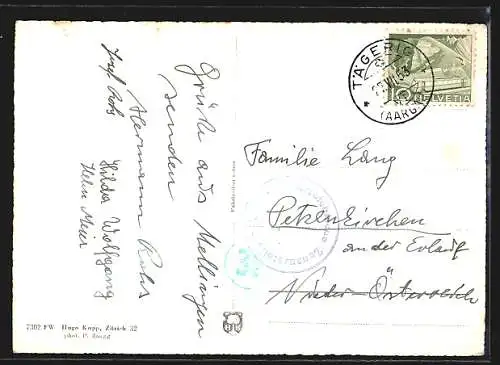 Grüße aus Mellingen
senden
Hermann Rohs
Josef Rohs
Hilda Wolfgang
Helen Meier
7302 FW Hugo Kopp, Zürich 32
phot. P. Zaugg
TÄGERIG
(AARG.)
10
HELVETIA
Familie Lang
Petzenkirchen
an der Erlauf
Nieder-Österreich